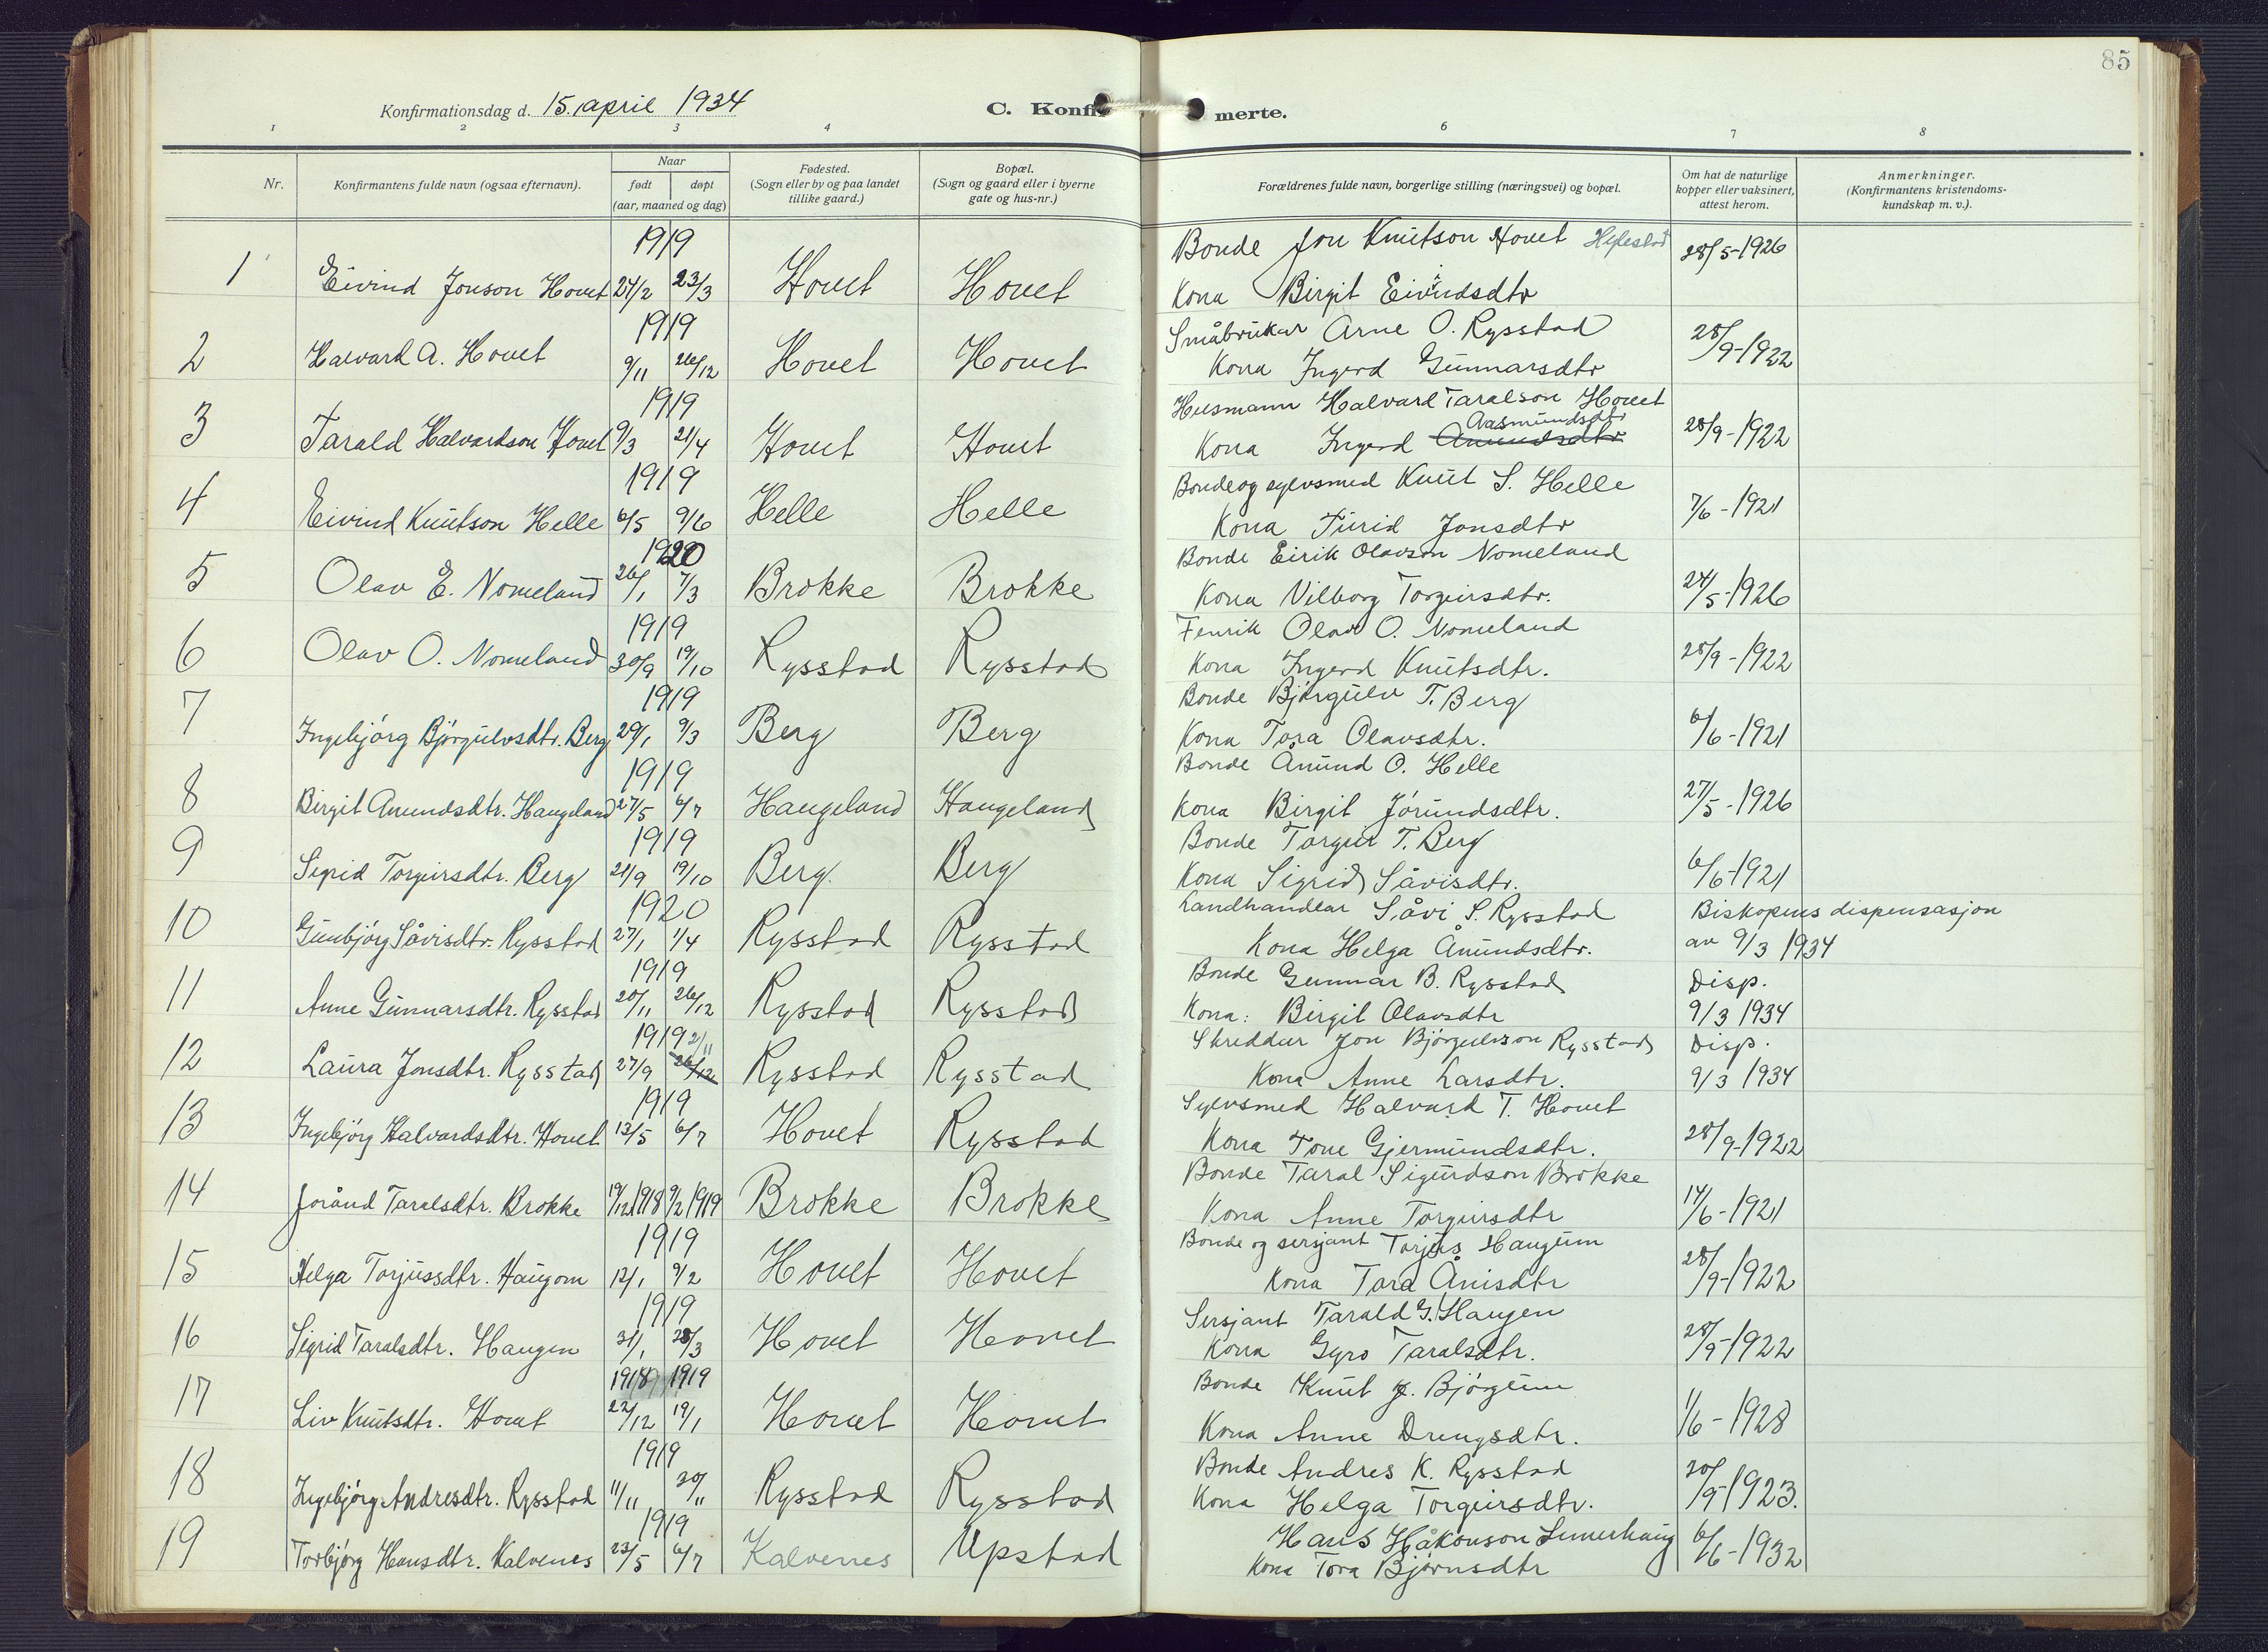 85
Konfirmationsdag d. 15. april 1934
C. Konfir
merte.
1 2 3 4 6 7 8
Nr.
Konfirmantens fulde navn (ogsaa efternavn).
Naar
født døpt
(aar, maaned og dag)
Fødested.
(Sogn eller by og paa landet
tillike gaard.)
Bopæl.
(Sogn og gaard eller i byerne
gate og hus-nr.)
Forældrenes fulde navn, borgerlige stilling (næringsvei) og bopæl.
Om hat de naturlige
kopper eller vaksinert,
attest herom.
Anmerkninger.
(Konfirmantens kristendoms-
kundskap m. v.).
1919 Bonde Jon Knutson Hovet Hylestad 28/5-1926
1 Eivind Jonson Hovet 24/2 23/3 Hovet Hovet Kona Birgit Eivindsdtr
1919 Småbrukar Arne O. Rysstad
2 Halvard A. Hovet 9/11 26/12 Hovet Hovet Kona Ingerd Gunnarsdtr 28/9-1922
1919 Husmann Halvard Taralson Hovet
Aasmundsdtr
3 Tarald Halvardson Hovet 9/3 21/4 Hovet Hovet Kona Ingerd Amundsdtr 28/9-1922
1919 Bonde og sylvsmed Knut S. Helle
4 Eivind Knutson Helle 6/5 9/6 Helle Helle Kona Turid Jonsdtr 7/6-1921
1920 Bonde Eirik Olavson Nomeland
5 Olav E. Nomeland 26/1 7/3 Brokke Brokke Kona Vilborg Torgeirsdtr. 24/5-1926
1919 Fenrik Olav O. Nomeland
6 Olav O. Nomeland 30/9 19/10 Rysstad Rysstad Kona Ingerd Knutsdtr. 28/9-1922
1919 Bonde Bjørgulv T. Berg
7 Ingebjörg Björgulvsdtr. Berg 29/1 9/3 Berg Berg Kona Tora Olavsdtr. 6/6-1921
1919 Bonde Ånund O. Helle
8 Birgit Anundsdtr. Haugeland 27/5 6/7 Haugeland Haugeland Kona Birgit Jórundsdtr. 27/5-1926
1919 Bonde Torgeir T. Berg
9 Sigrid Torgeirsdtr. Berg 21/9 19/10 Berg. Berg Kona Sigrid Såvisdtr. 6/6-1921
1920 Landhandlar Såvi S. Rysstad Biskopens dispensasjon
10 Gunbjörg Såvisdtr. Rysstad 27/1 1/4 Rysstad Rysstad Kona Helga Ånundsdtr. av 9/3 1934
1919 Bonde Gunnar B. Rysstad Disp.
11 Anne Gunnarsdtr. Rysstad 20/11 26/12 Rysstad Rysstad Kona: Birgit Olavsdtr 9/3 1934
1919 2/11 Skreddar Jon Bjørgulvson Rysstad Disp.
12 Laura Jonsdtr. Rysstad 27/9 26/12 Rysstad Rysstad Kona Anne Larsdtr. 9/3 1934
1919 Sylvsmed Halvard T. Hovet
13 Ingebjörg Halvardsdtr. Hovet 13/5 6/7 Hovet Rysstad Kona Tone Gjermundsdtr. 28/9-1922
Bonde Taral Sigurdson Brokke
14 Jorånd Taralsdtr. Brokke 19/12 1918 9/2 1919 Brokke Brokke Kona Anne Torgeirsdtr 14/6-1921
1919 Bonde og sersjant Torjus Haugum
15 Helga Torjussdtr. Haugom 12/1 9/2 Hovet Hovet Kona Tora Ånisdtr 28/9-1922
1919 Sersjant Tarald G. Haugen
16 Sigrid Taralsdtr. Haugen 31/1 28/3 Hovet Hovet Kona Gyro Taralsdtr. 28/9-1922
1918 1919 Bonde Knut Bjørgum
17 Liv Knutsdtr. Hovet 22/12 19/1 Hovet Hovet Kona Anne Drengsdtr. 1/6-1928
1919 Bonde Andres K. Rysstad
18 Ingebjörg Andresdtr. Rysstad 11/11 30/11 Rysstad Rysstad Kona Helga Torgeirsdtr. 20/9-1923.
1919 Hans Håkonson
19 Torbjørg Hansdtr. Kalvenes 23/5 6/7 Kalvenes Upstad Kona Tora Bjørnsdtr 6/6-1932